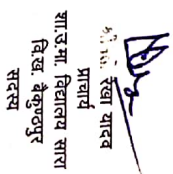 श्रीमती रेखा यादव
प्राचार्य
शा.उ.मा. विद्यालय सारा
वि.ख. बैकुण्ठपुर
सदस्य